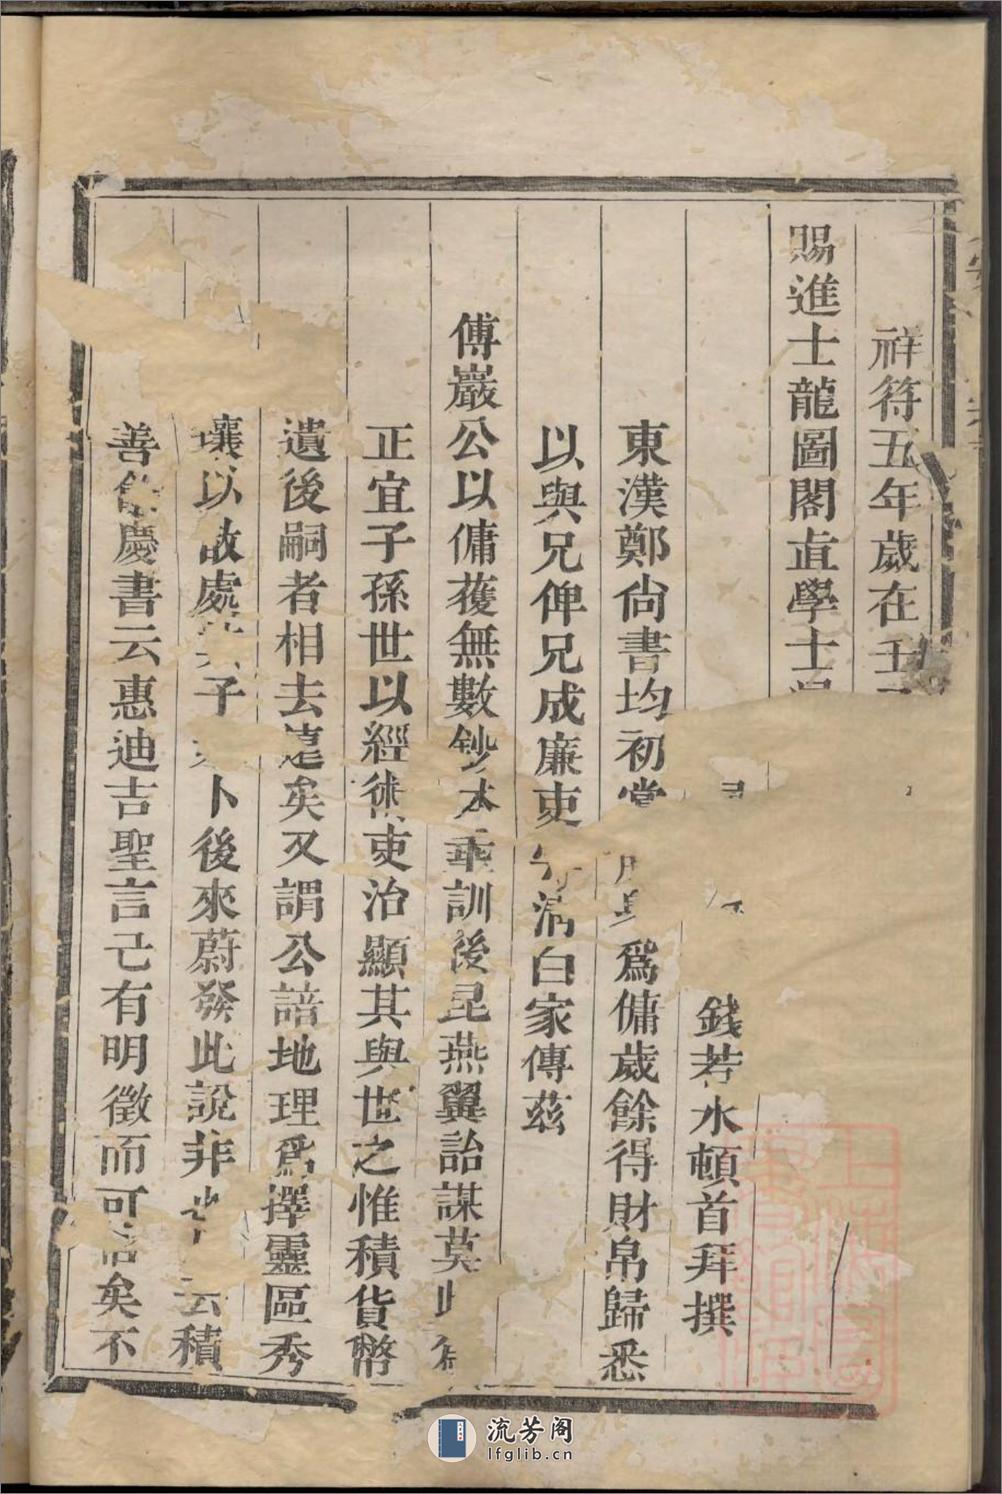 祥符五年歲在壬
賜進士龍圖閣直學士
錢若水頓首拜撰
東漢鄭尚書均初為傭歲餘得財帛歸悉
以與兄俾兄成廉吏清白家傳茲
傅巖公以傭獲無數鈔本垂訓後昆燕翼詒謀莫此
正宜子孫世以經術吏治顯其與世之惟積貨幣
遺後嗣者相去遠矣又謂公諳地理為擇靈區秀
壤以故處子卜後來蔚發此說非云積
善餘慶書云惠迪吉聖言已有明徵而可信矣不
流芳阁
lfglib.cn